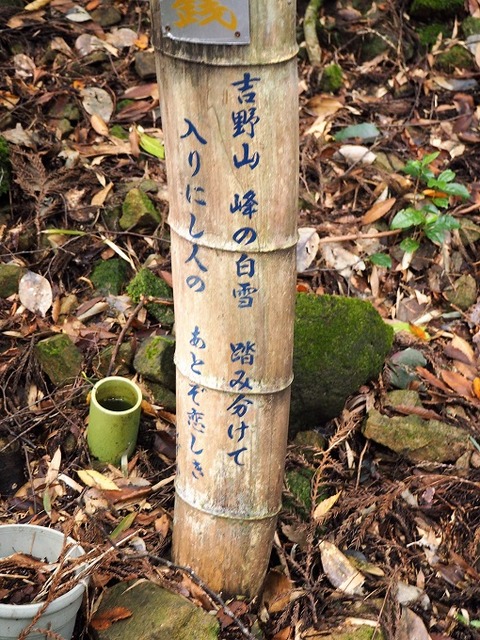 銭
吉野山 峰の白雪 踏み分けて
入りにし人の あとぞ恋しき